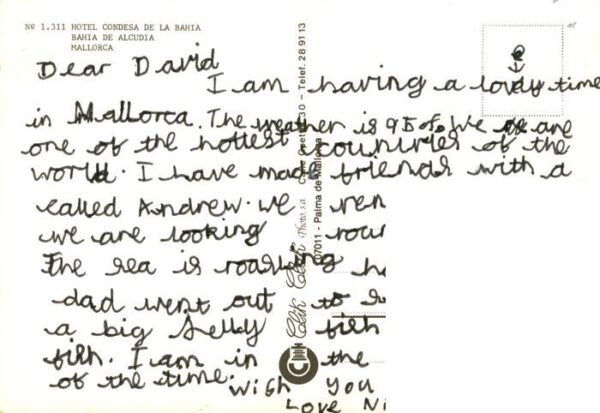 Nº 1.311 HOTEL CONDESA DE LA BAHIA
BAHIA DE ALCUDIA
MALLORCA
Dear David
I am having a lovly time
in Mallorca. The weather is 95 of. We are
one of the hottest countries of the
world. I have made friends with a
called Andrew. we ren
we are looking rou
The sea is roasking h
dad went out to s
a big Jelly fish
fish. I am in the
of the time. Wish You
Love Ni
Clik Clack Photo s.a.
30 - Telef. 28 91 13
07011 - Palma de Mallorca